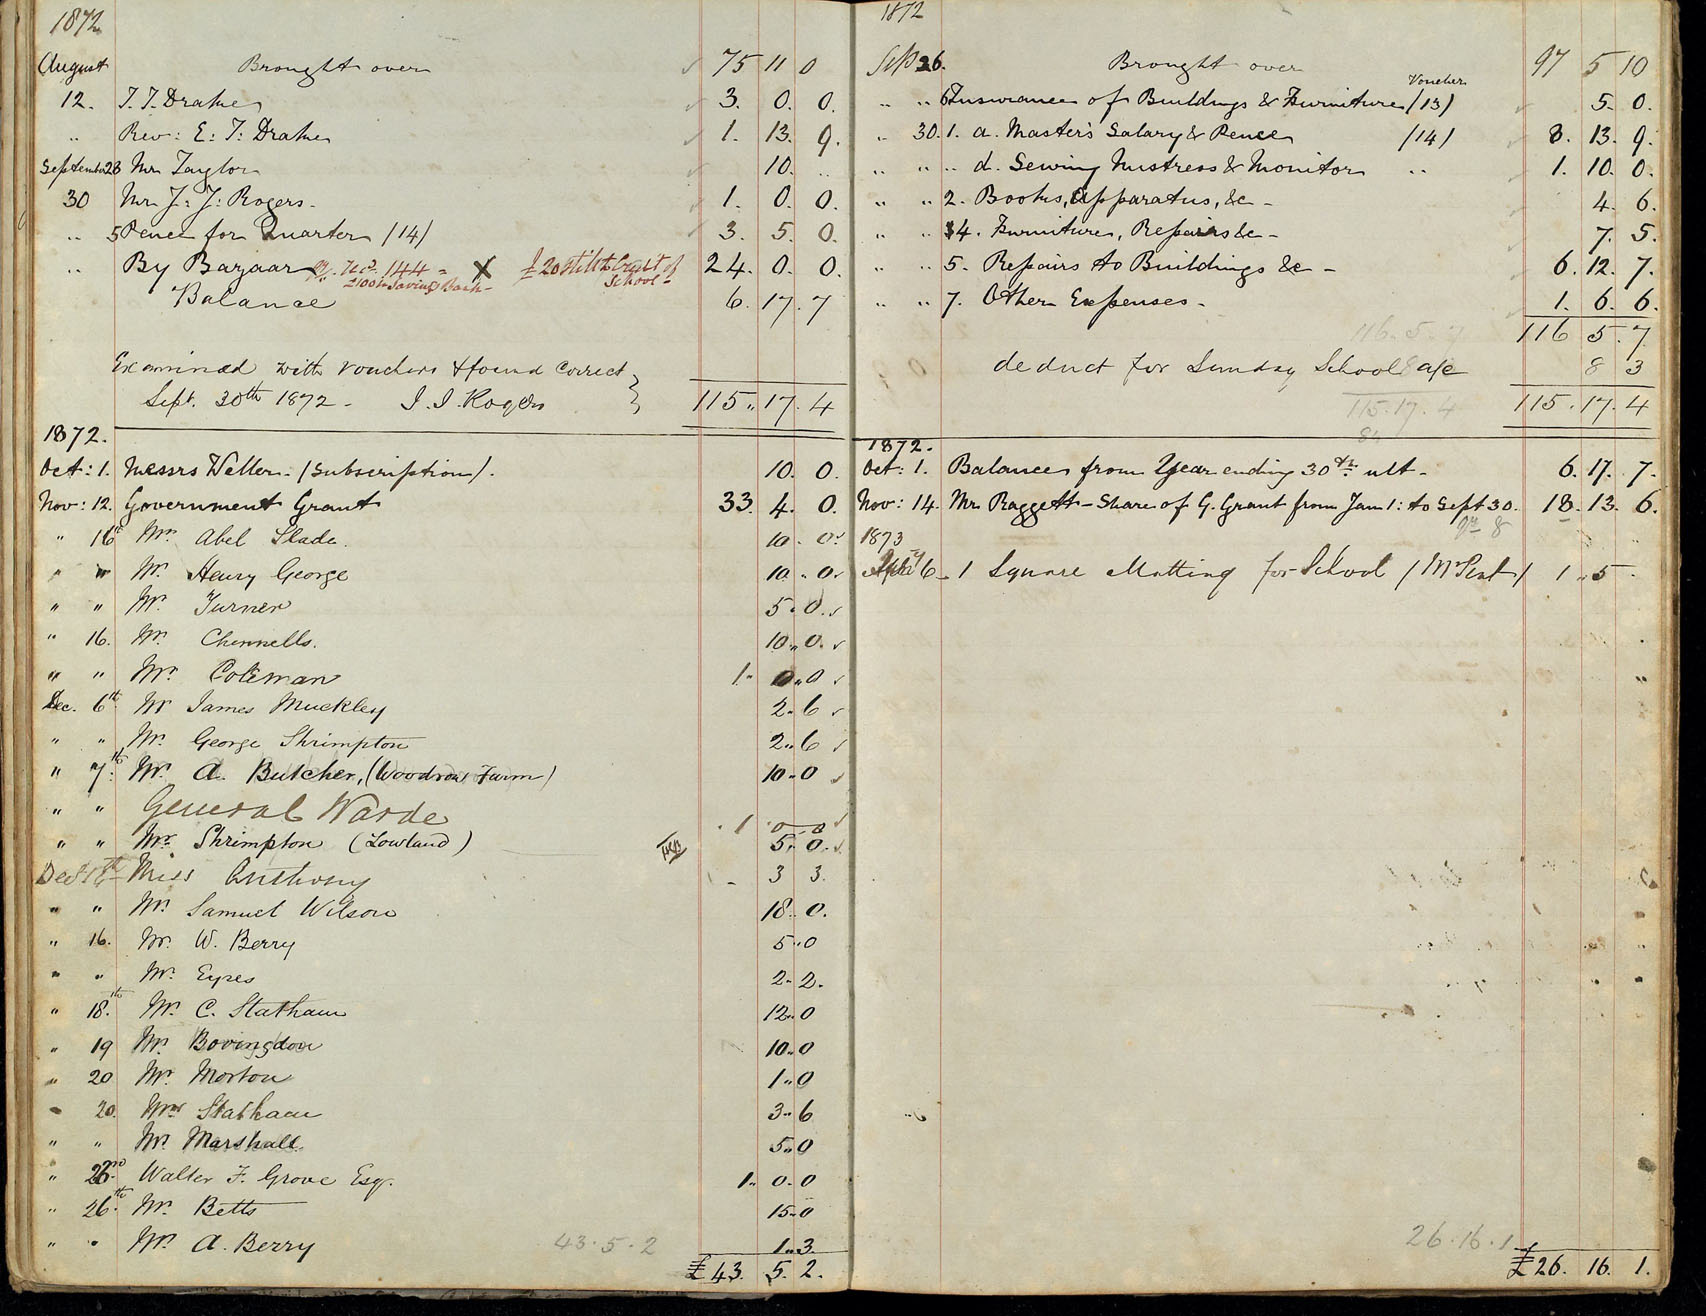 1872
August Brought over 75 11 0
12. T. T. Drake 3. 0. 0.
" Rev: E: T: Drake 1. 13. 9.
September 28 Mr Taylor 10. ..
30 Mr J: J: Rogers - 1. 0. 0.
" 5 Pence for Quarter /14/ 3. 5. 0.
" By Bazaar 144 - X £20 still to Credit of School - 24. 0. 0.
£100 in Savings Bank -
Balance 6. 17. 7
Examined with vouchers & found correct
Sept. 30th 1872 - J. J. Rogers 115 " 17. 4
1872.
Oct: 1. Messrs Weller - (Subscription). 10. 0.
Nov: 12. Government Grant 33. 4. 0.
" 16th Mr. Abel Slade. 10. 0.
" " Mr. Henry George 10 " 0
" " Mr. Turner 5 " 0.
" 16. Mr. Chennells. 10 " 0.
" " Mr. Coleman 1 " 0 " 0
Dec. 6th Mr James Muckley 2 " 6
" " Mr. George Shrimpton 2 " 6
" 7th. Mr. A. Butcher, (Woodrow Farm) 10 " 0
" " General Warde 1 . 0 . 0
" " Mr. Shrimpton (Lowland) 5 " 0.
Dec 16th Miss Anthony - 3 3.
" " Mr. Samuel Wilson 18 " 0.
" 16. Mr. W. Berry 5 " 0
" " Mr. Eyres 2 " 2.
" 18th. Mr. C. Statham 12 " 0
" 19 Mr. Bovingdon 10 " 0
" 20 Mr. Morton 1 " 0
" 20. Mrs Statham 3 " 6
" " Mr. Marshall 5 " 0
" Walter F. Grove Esq. 1 " 0 . 0
" 26th. Mr. Betts 15 " 0
" " Mr. A. Berry 43 . 5 . 2 1 " 3.
£ 43. 5. 2.
1872
Sep 26. Brought over 97 5 10
Voucher
" " 6 Insurance of Buildings & Furniture /13/ 5. 0.
" 30. 1. a. Master's Salary & Pence /14/ 8. 13. 9.
" " " d. Sewing Mistress & Monitor " 1. 10. 0.
" " 2. Books, Apparatus, &c - 4. 6.
" " 4. Furniture, Repairs &c - 7. 5.
" " 5. Repairs to Buildings &c - 6. 12. 7.
" " 7. Other Expenses - 1. 6. 6.
116 . 5 . 7 116 5. 7
deduct for Sunday School a/c 8 3
115 . 17 . 4 115 . 17 . 4
1872.
Oct: 1. Balance from Year ending 30th ult - 6. 17. 7.
Nov: 14. Mr Raggett - Share of G. Grant from Jan 1: to Sept 30. 18. 13. 6.
1873
6 - 1 Square Matting for School 1 " 5 -
26 . 16 . 1
£ 26. 16. 1.